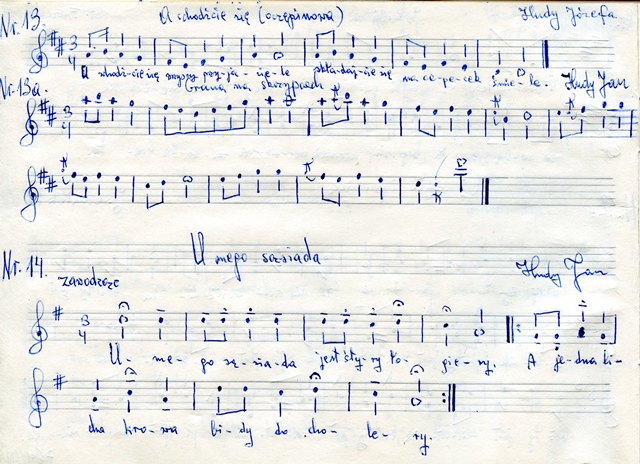 Nr. 13. A schodźcie się (oczepinowa) Hudy Józefa
3 4
A schodź-cie się wszyscy przy-ja-cie-le skła-daj-cie się na ce-pe-cek śmie-le. Hudy Jan
Nr. 13a. Grana na skrzypcach
3 4
Nr. 14. U mego sąsiada Hudy Jan
zawodząc
3 4
U- me- go są-sia-da jest śty-ry ło- gie-ry. A je-dna li-
cha kro-wa bi-dy do cho- le- ry.